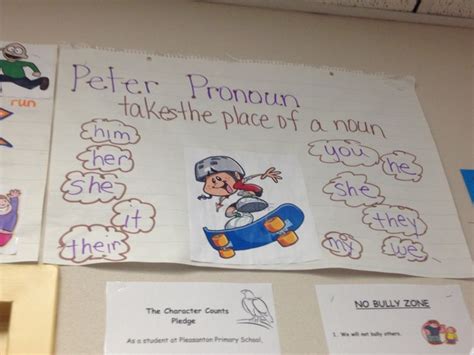 run
Peter Pronoun
takes the place of a noun
him
her
she
it
their
you
he
she
they
my
we
The Character Counts
Pledge
As a student at Pleasanton Primary School,
NO BULLY ZONE
1. We will not bully others.